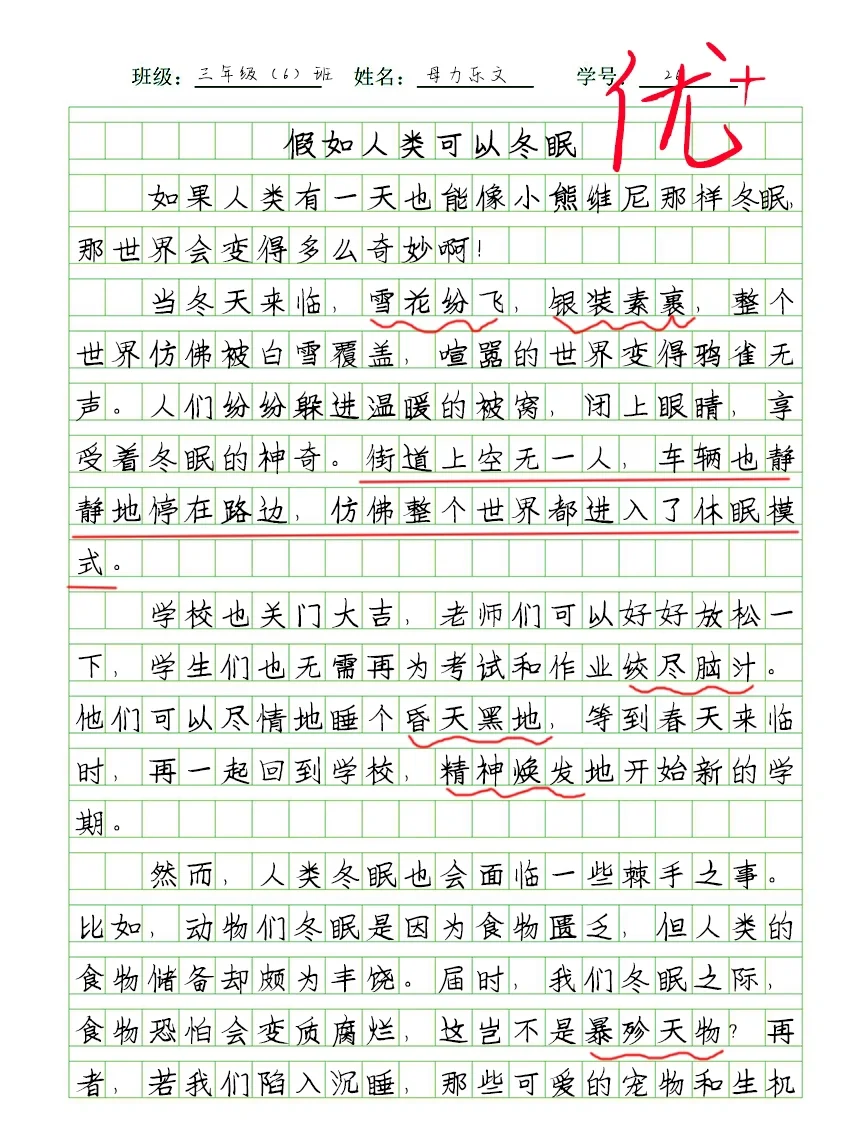 班级：三年级（6）班 姓名：母力乐文 学号：
优+
假如人类可以冬眠
如果人类有一天也能像小熊维尼那样冬眠，
那世界会变得多么奇妙啊！
当冬天来临，雪花纷飞，银装素裹，整个
世界仿佛被白雪覆盖，喧嚣的世界变得鸦雀无
声。人们纷纷躲进温暖的被窝，闭上眼睛，享
受着冬眠的神奇。街道上空无一人，车辆也静
静地停在路边，仿佛整个世界都进入了休眠模
式。
学校也关门大吉，老师们可以好好放松一
下，学生们也无需再为考试和作业绞尽脑汁。
他们可以尽情地睡个昏天黑地，等到春天来临
时，再一起回到学校，精神焕发地开始新的学
期。
然而，人类冬眠也会面临一些棘手之事。
比如，动物们冬眠是因为食物匮乏，但人类的
食物储备却颇为丰饶。届时，我们冬眠之际，
食物恐怕会变质腐烂，这岂不是暴殄天物？再
者，若我们陷入沉睡，那些可爱的宠物和生机